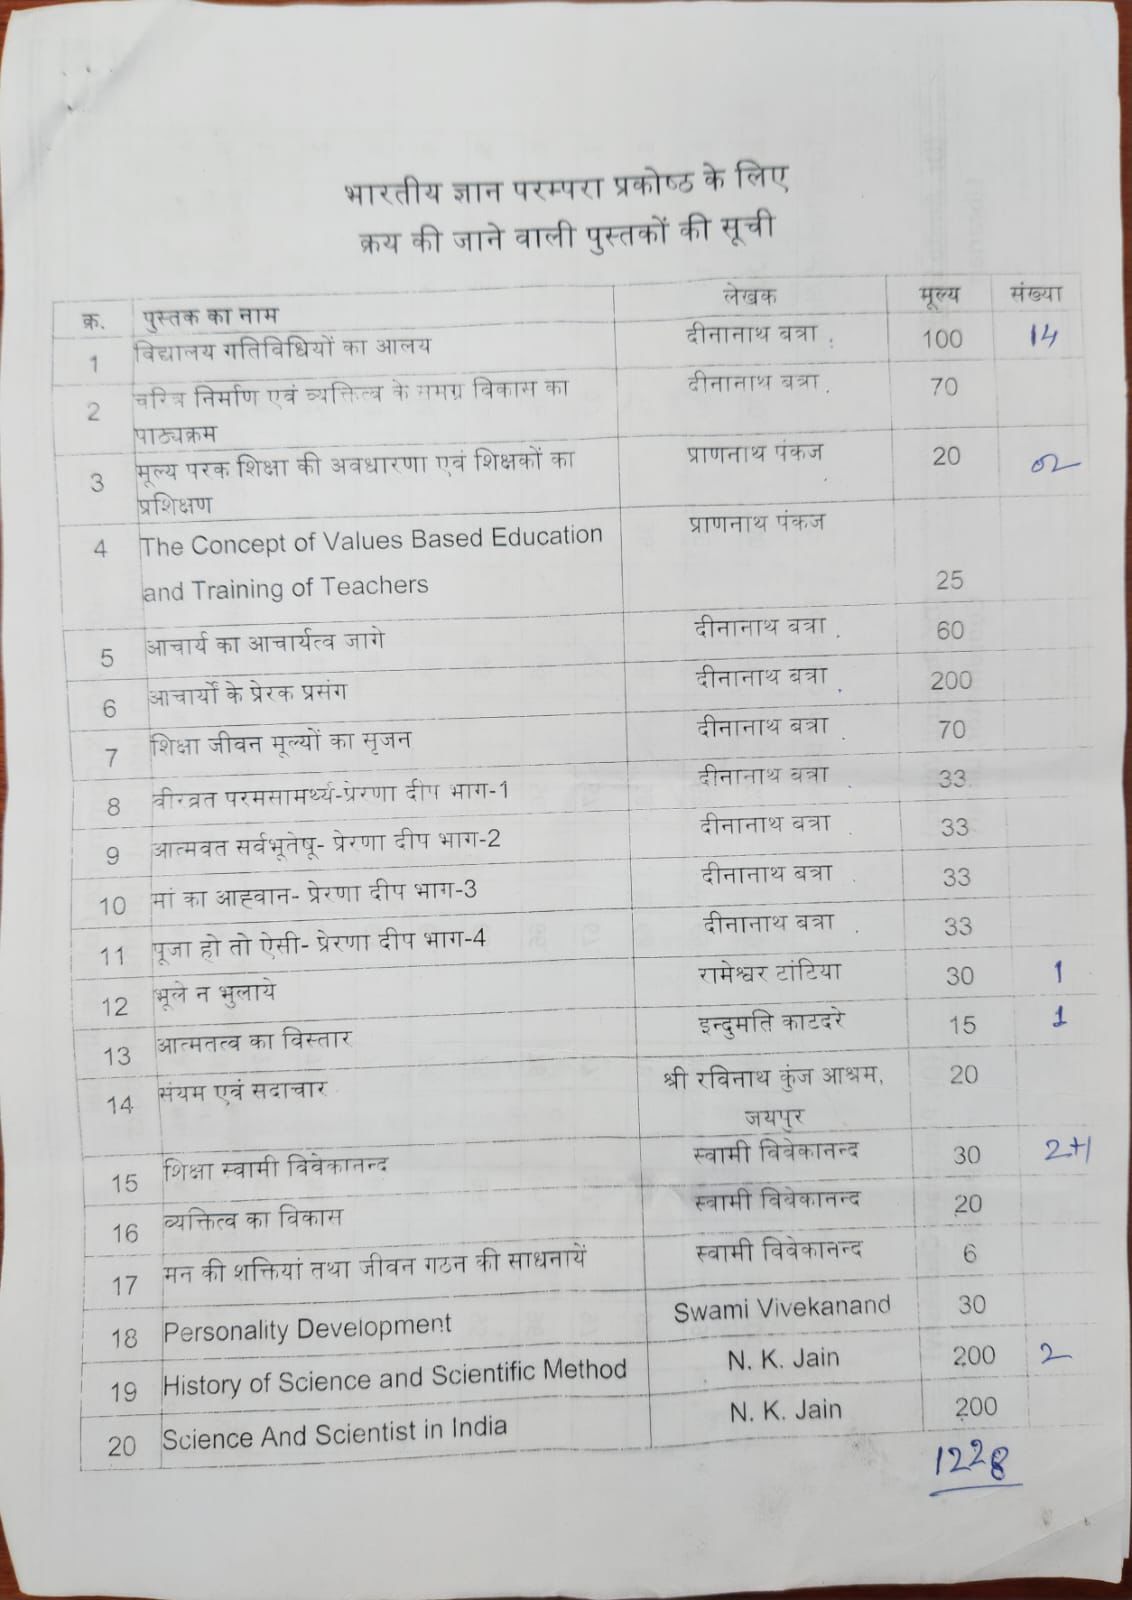 भारतीय ज्ञान परम्परा प्रकोष्ठ के लिए
क्रय की जाने वाली पुस्तकों की सूची
क्र. पुस्तक का नाम लेखक मूल्य संख्या
1 विद्यालय गतिविधियों का आलय दीनानाथ बत्रा 100 14
2 चरित्र निर्माण एवं व्यक्तित्व के समग्र विकास का दीनानाथ बत्रा 70
पाठ्यक्रम
3 मूल्य परक शिक्षा की अवधारणा एवं शिक्षकों का प्राणनाथ पंकज 20 02
प्रशिक्षण
4 The Concept of Values Based Education प्राणनाथ पंकज
and Training of Teachers 25
5 आचार्य का आचार्यत्व जागे दीनानाथ बत्रा 60
6 आचार्यों के प्रेरक प्रसंग दीनानाथ बत्रा 200
7 शिक्षा जीवन मूल्यों का सृजन दीनानाथ बत्रा 70
8 वीरव्रत परमसामर्थ्य-प्रेरणा दीप भाग-1 दीनानाथ बत्रा 33
9 आत्मवत सर्वभूतेषू- प्रेरणा दीप भाग-2 दीनानाथ बत्रा 33
10 मां का आहवान- प्रेरणा दीप भाग-3 दीनानाथ बत्रा 33
11 पूजा हो तो ऐसी- प्रेरणा दीप भाग-4 दीनानाथ बत्रा 33
12 भूले न भुलाये रामेश्वर टांटिया 30 1
13 आत्मतत्व का विस्तार इन्दुमति काटदरे 15 1
14 संयम एवं सदाचार श्री रविनाथ कुंज आश्रम, 20
जयपुर
15 शिक्षा स्वामी विवेकानन्द स्वामी विवेकानन्द 30 2+1
16 व्यक्तित्व का विकास स्वामी विवेकानन्द 20
17 मन की शक्तियां तथा जीवन गठन की साधनायें स्वामी विवेकानन्द 6
18 Personality Development Swami Vivekanand 30
19 History of Science and Scientific Method N. K. Jain 200 2
20 Science And Scientist in India N. K. Jain 200
1228